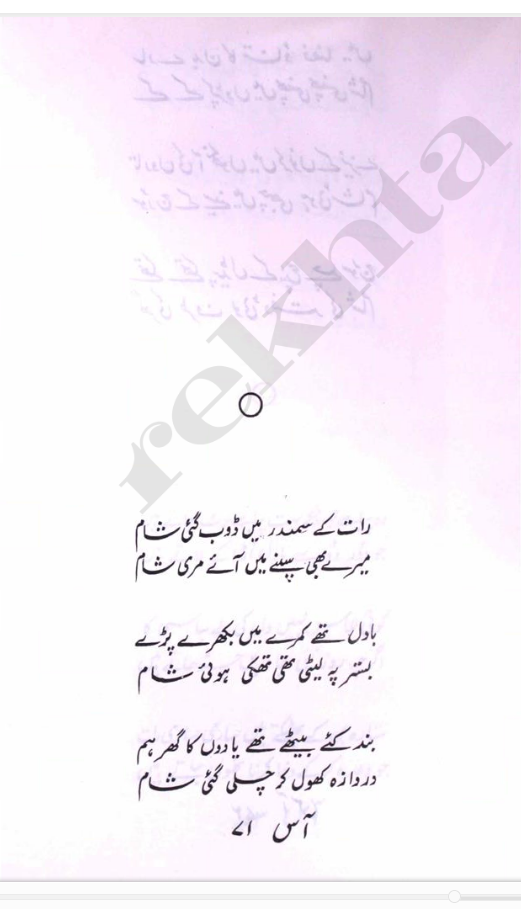 rekhta
رات کے سمندر میں ڈوب گئی شام
میرے بھی سپنے میں آئے مری شام
بادل تھے کمرے میں بکھرے پڑے
بستر پہ لیٹی تھی تھکی ہوئی شام
بند کئے بیٹھے تھے یادوں کا گھر ہم
دردازہ کھول کر چلی گئی شام
آس ۷۱